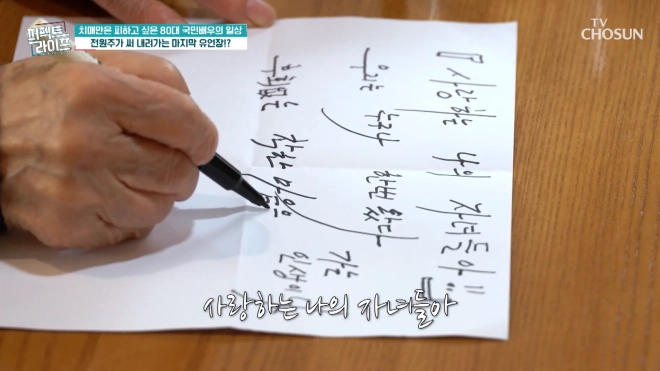 퍼펙트
라이프
치매만은 피하고 싶은 80대 국민배우의 일상
전원주가 써 내려가는 마지막 유언장!?
TV
CHOSUN
『사랑하는 나의 자녀들아"
우리는 누구나 한번 왔다
가는 인생이
후회없는 착한 마음
사랑하는 나의 자녀들아